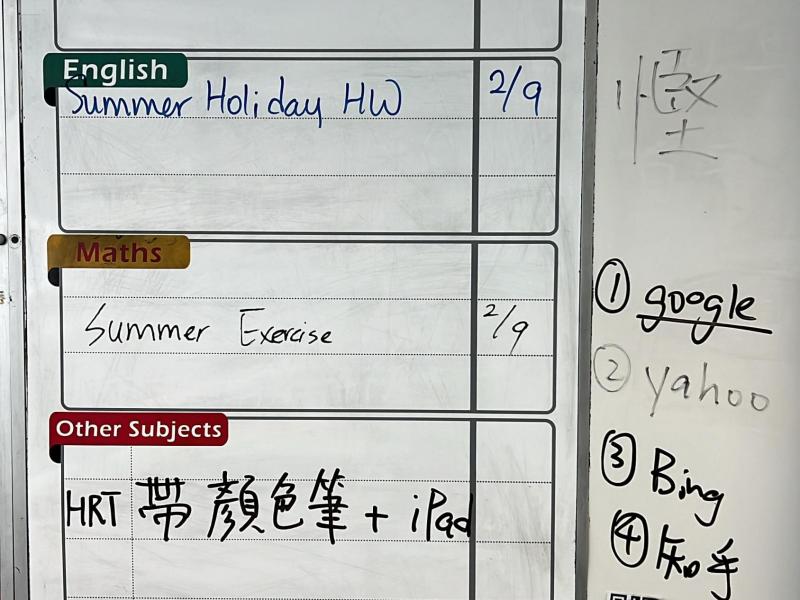 English
Summer Holiday HW 2/9
Maths
Summer Exercise 2/9
Other Subjects
HRT 帶顏色筆 + iPad
慳
① google
② yahoo
③ Bing
④ 知乎